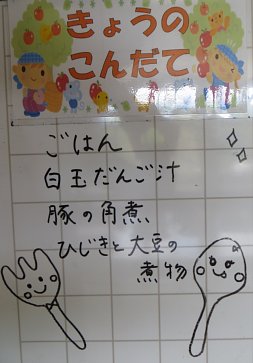 きょうの
こんだて
ごはん
白玉だんご汁
豚の角煮
ひじきと大豆の
煮物